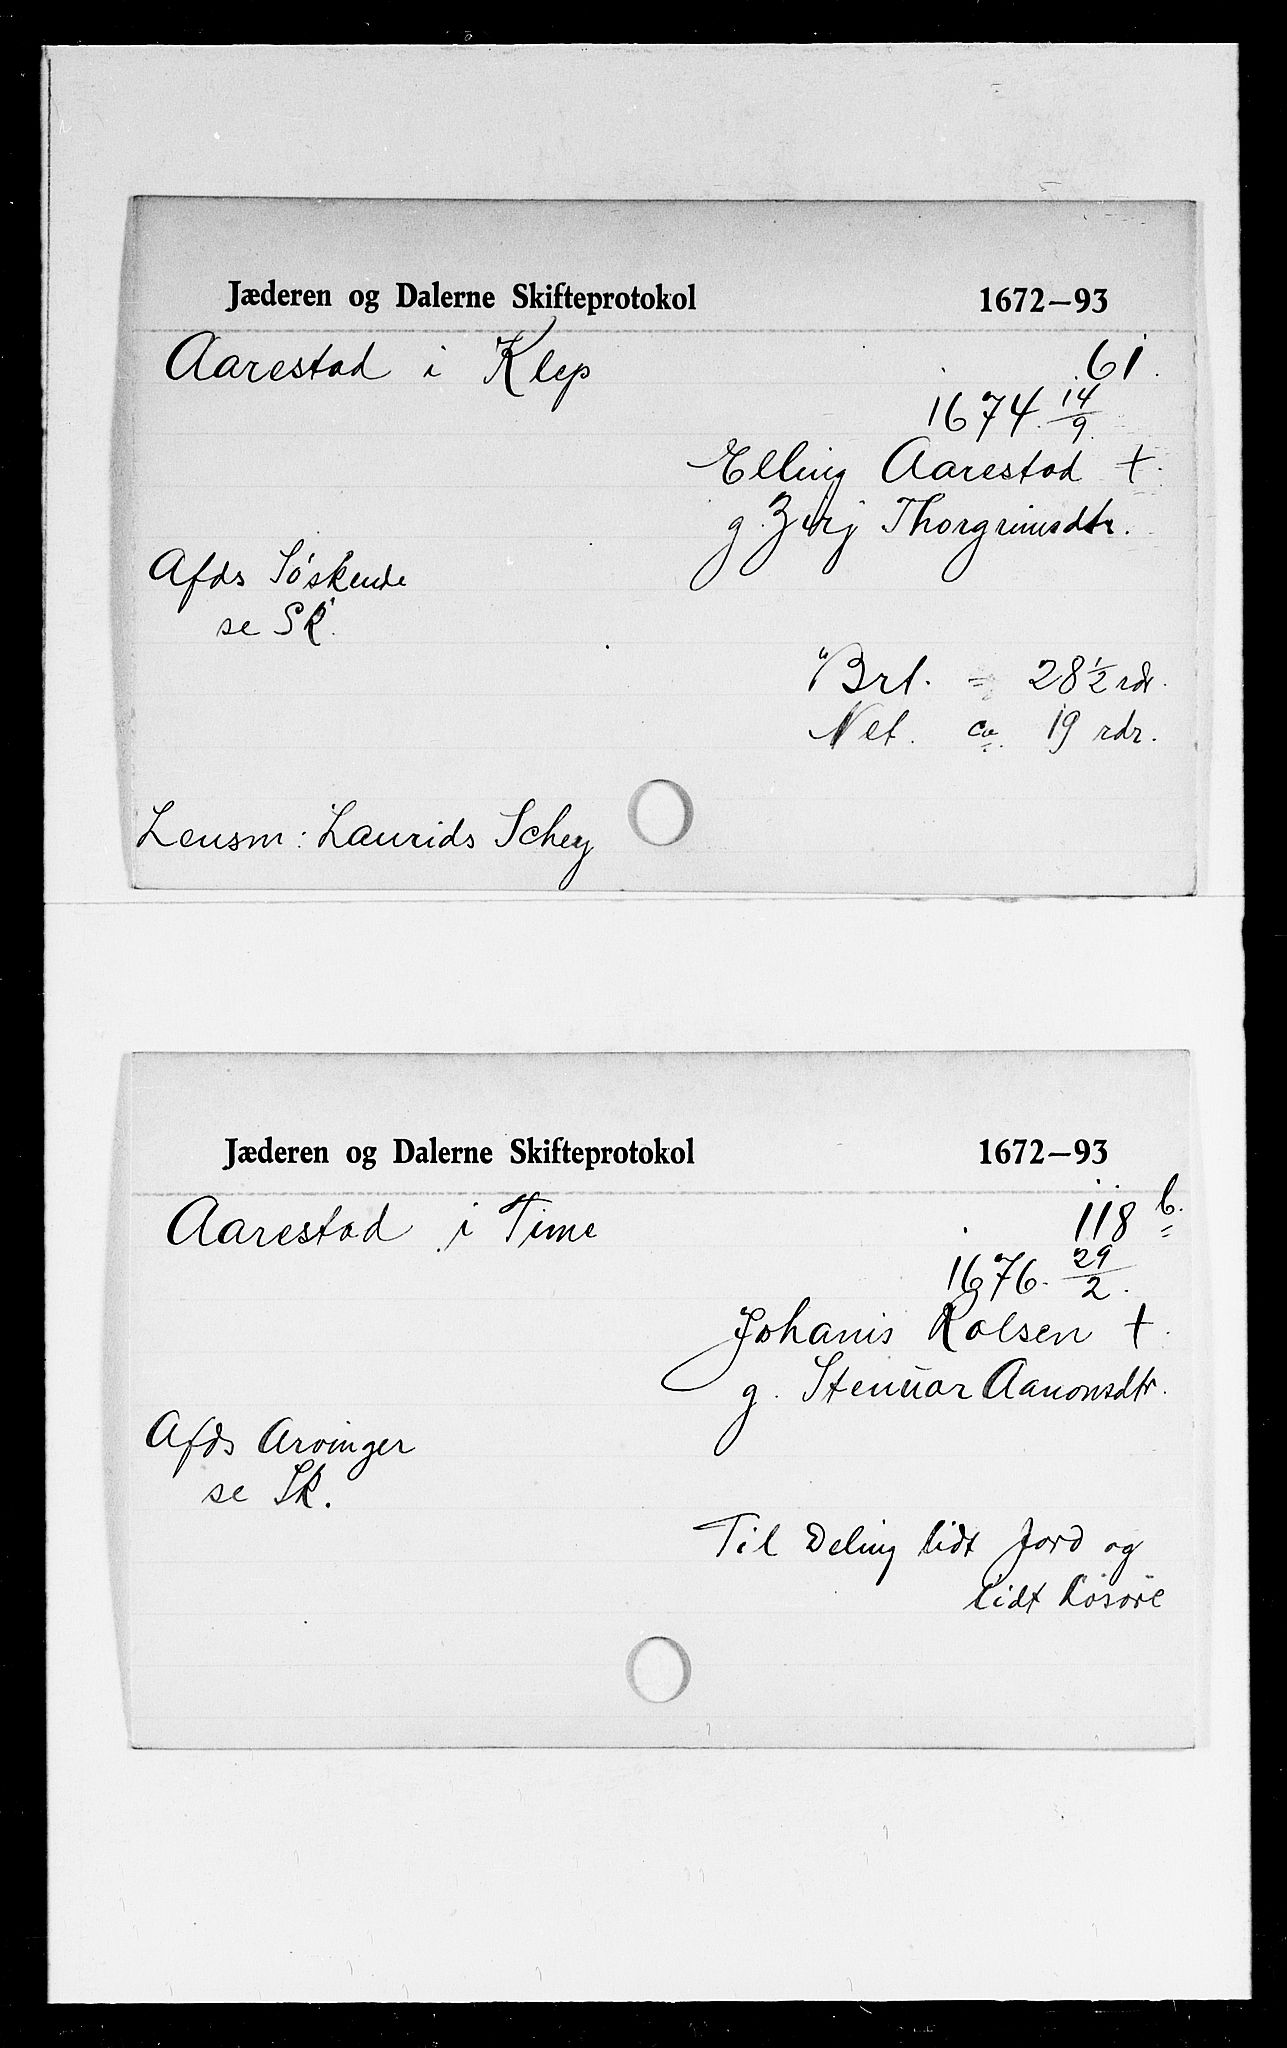 Jæderen og Dalerne Skifteprotokol 1672–93
Aarestad i Klep 61.
1674. 14/9.
Elling Aarestad †.
g. Thorgrimsdtr.
Afds Søskende
se Sk.
Brt. = 28 1/2 rdr.
Net. ca. 19 rdr.
Lensm: Laurids Schey
Jæderen og Dalerne Skifteprotokol 1672–93
Aarestad i Time 118 b.
1676. 29/2.
Johanis Rolsen †.
g. Aanonsdtr.
Afds Arvinger
se Sk.
Til Deling lidt Jord og
lidt Løsøre